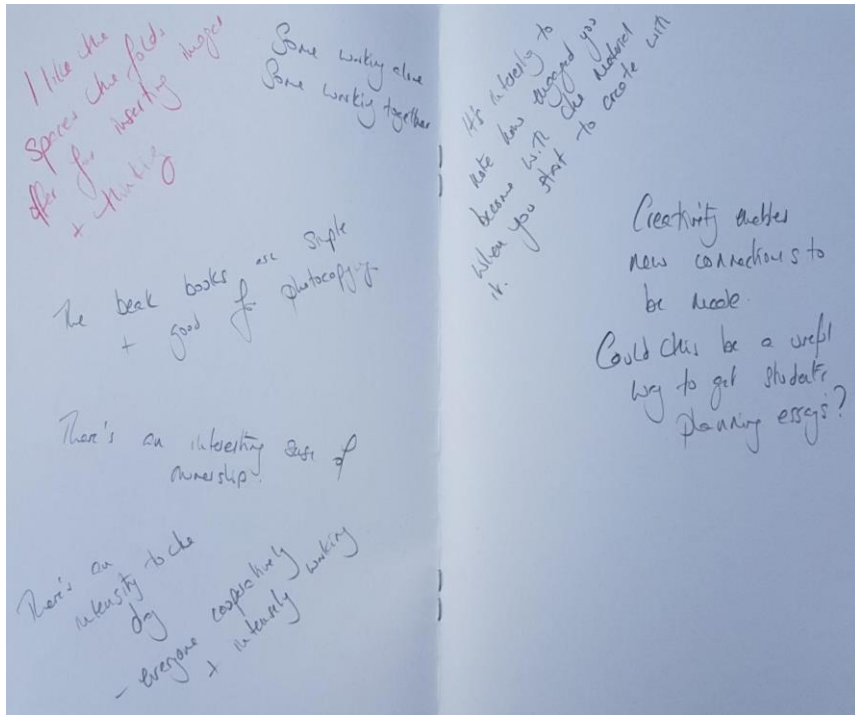 I like the
spaces the folds
offer for inserting images
+ thinking
Some working alone
Some working together
The beak books are simple
+ good for photocopying.
There's an interesting sense of
ownership.
There's an
intensity to the
day
- everyone cooperatively
+ intensely working
It's interesting to
note how engaged you
become with the material
when you start to create with
it.
Creativity enables
new connections to
be made.
Could this be a useful
way to get students
planning essays?